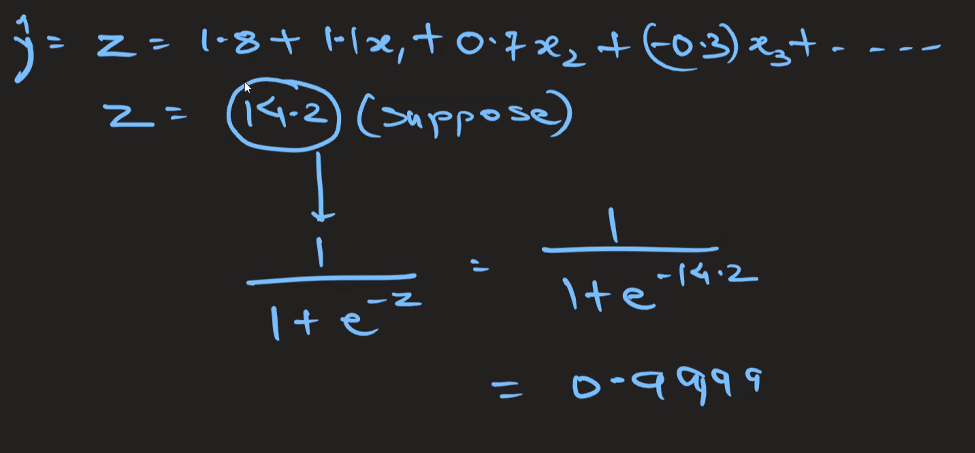 ŷ = z = 1.8 + 1.1x₁ + 0.7x₂ + (-0.3)x₃ + - - - - -
z = 14.2 (suppose)
1 / (1 + e^(-z)) = 1 / (1 + e^(-14.2))
= 0.9999